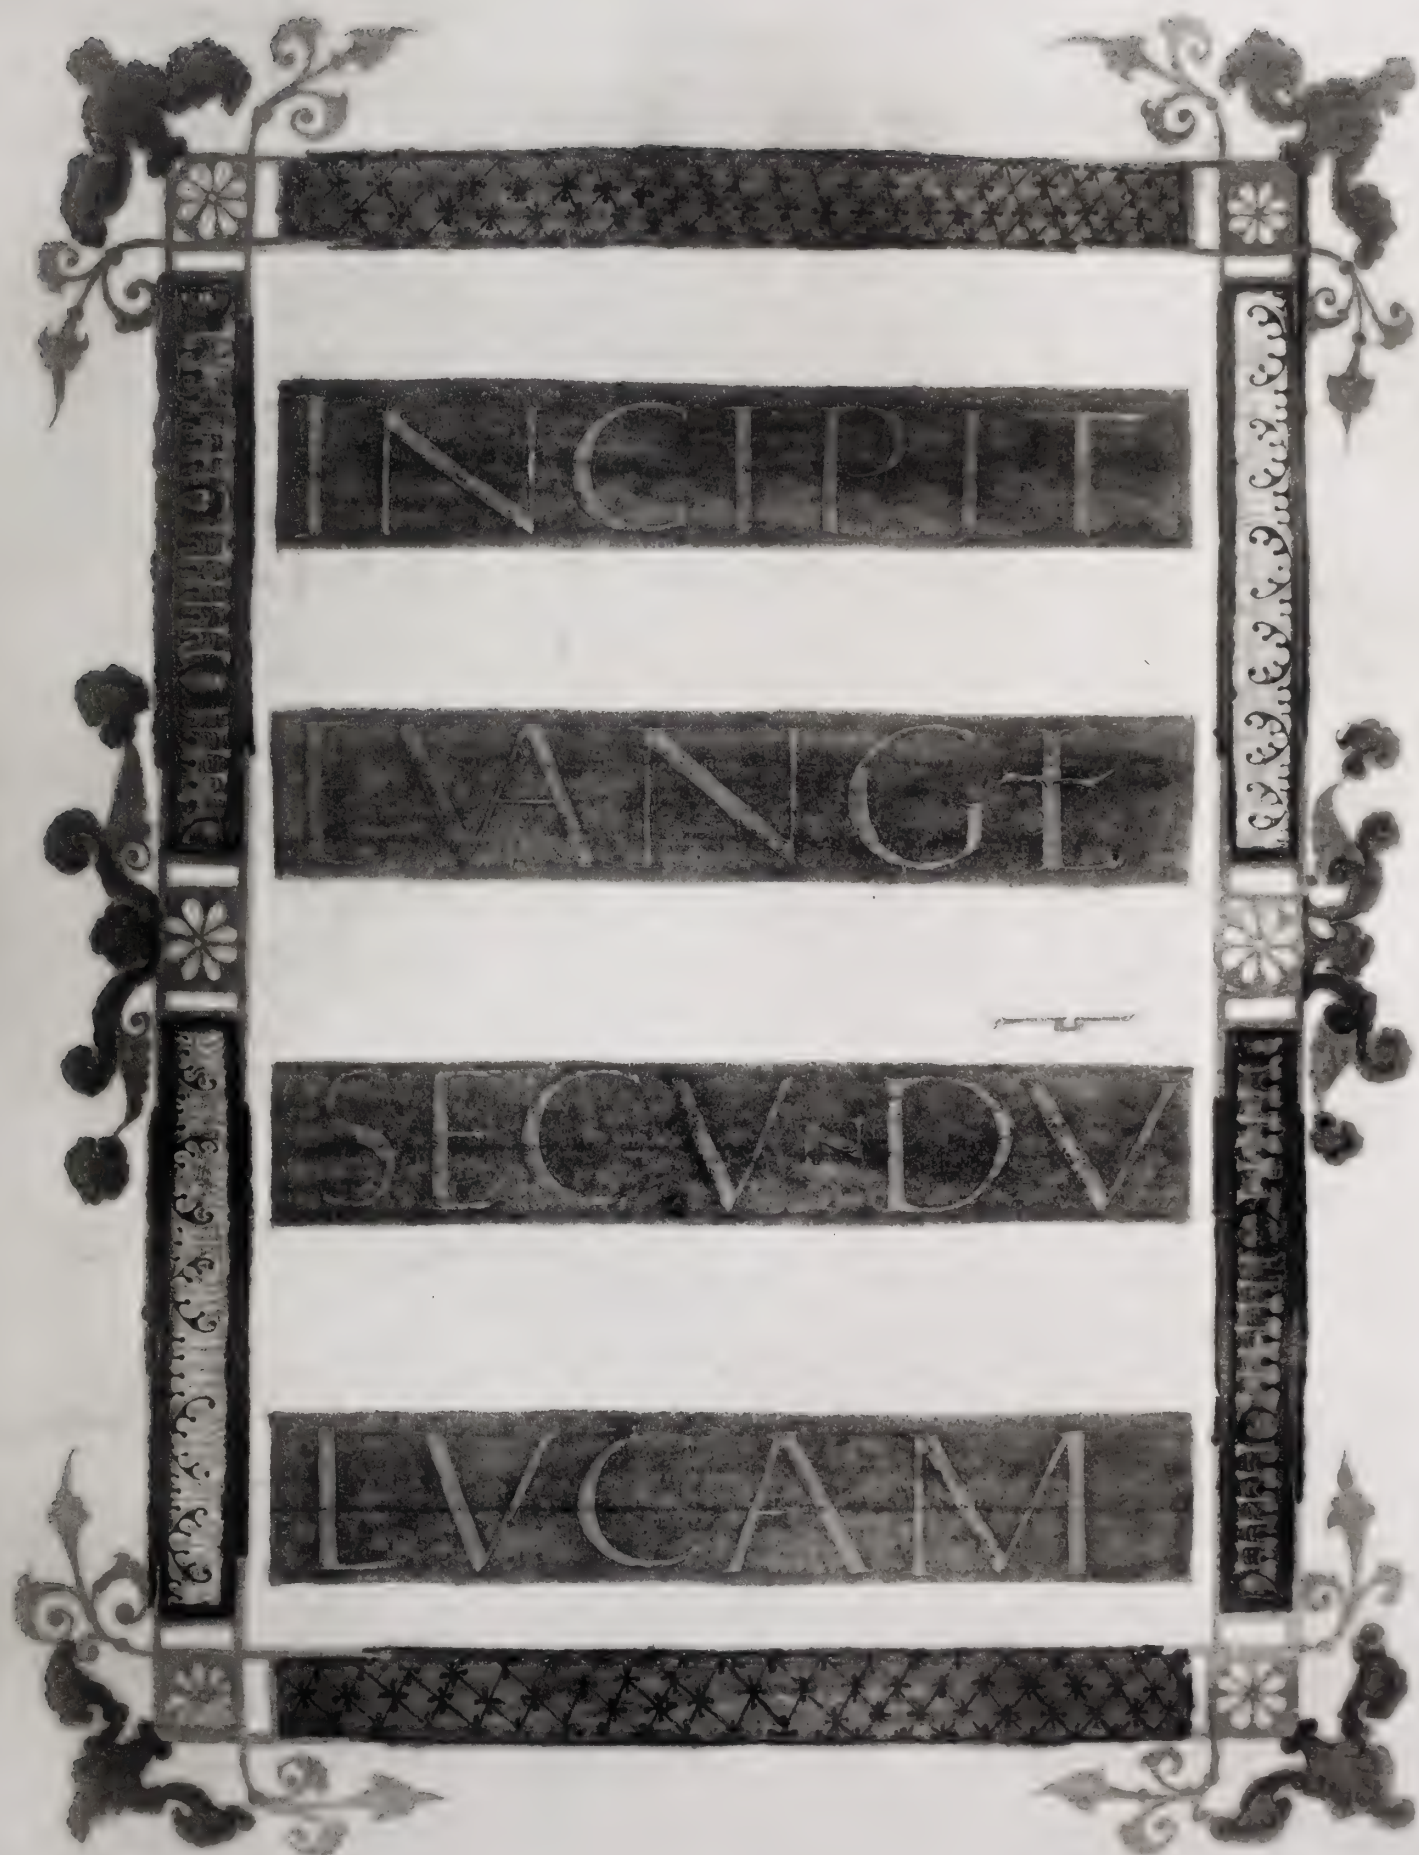 INCIPIT
EVANGꝈ
SECVNDV̅
LVCAM